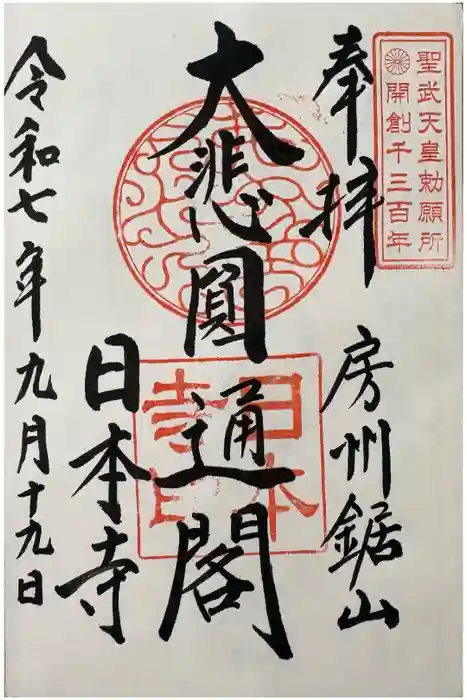 聖武天皇勅願所
開創千三百年
奉拝
房州鋸山
大悲心圓通閣
日本寺
日本
寺印
令和七年九月十九日